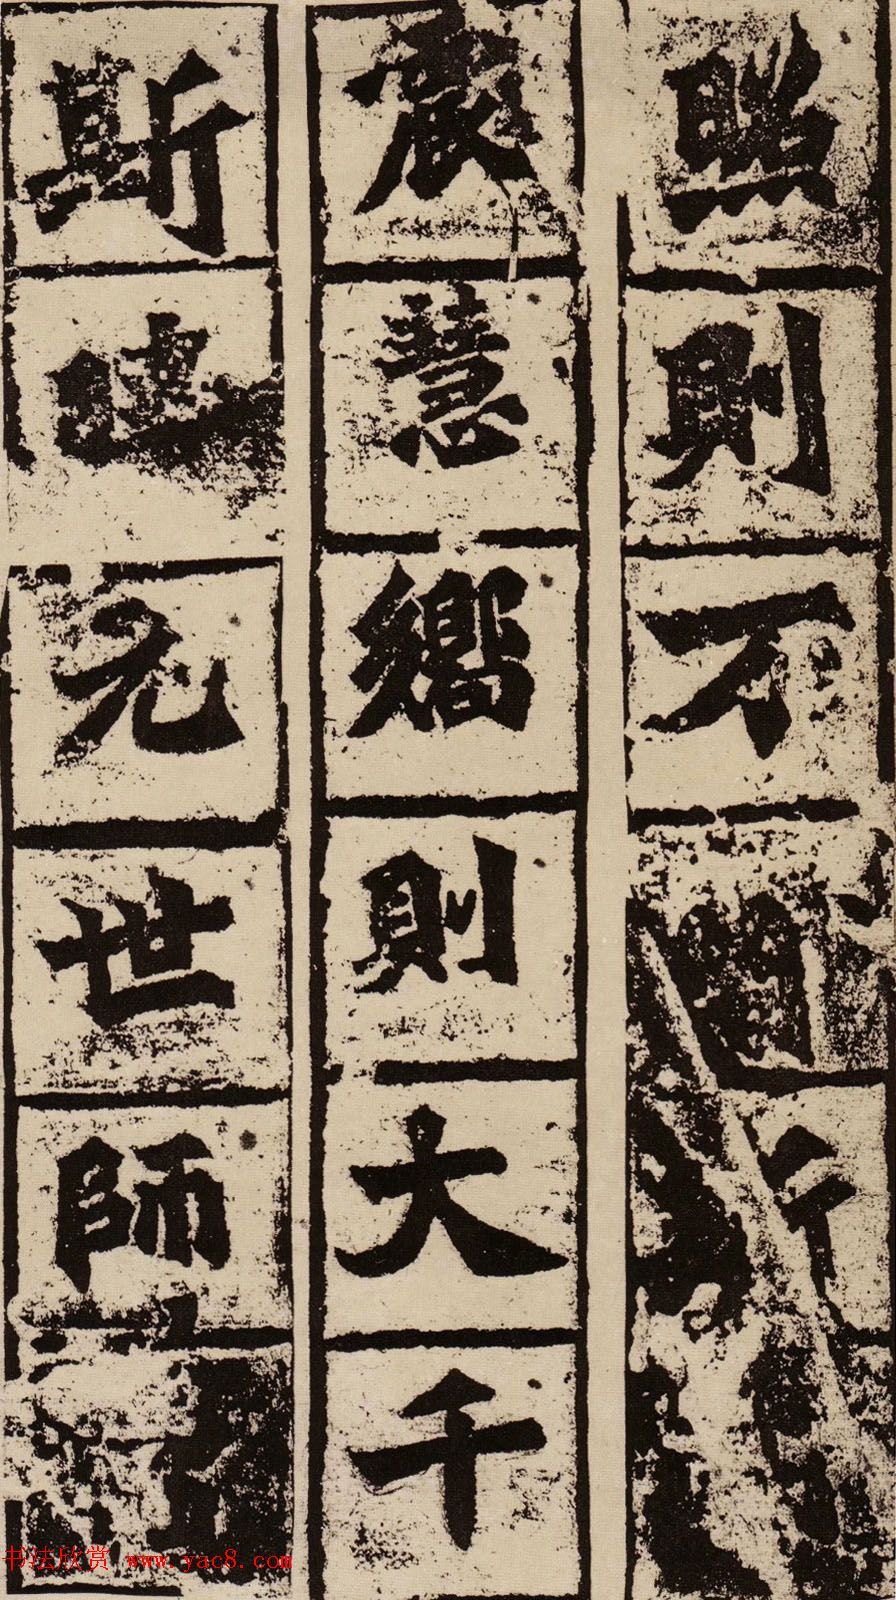 照則不
震慧嚮則大千
斯曉元世師
书法欣赏 www.yac8.com